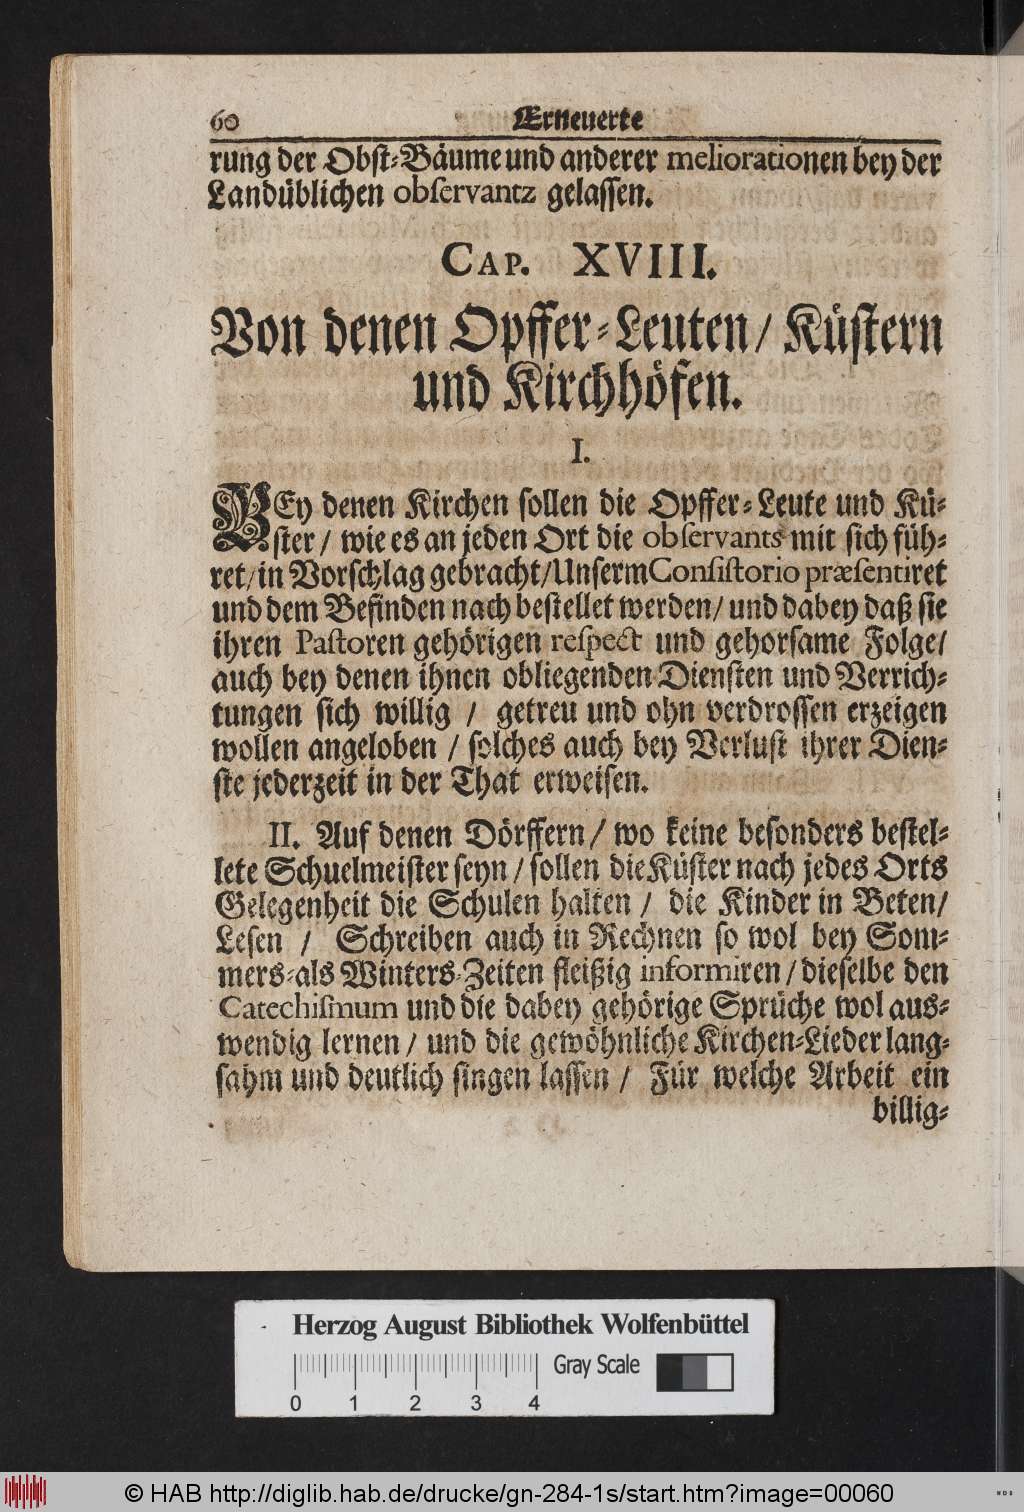 60 Erneuerte
rung der Obst-Bäume und anderer meliorationen bey der
Landüblichen obſervantz gelassen.
CAP. XVIII.
Von denen Opffer-Leuten / Küstern
und Kirchhöfen.
I.
BEy denen Kirchen sollen die Opffer-Leute und Kü-
ster / wie es an jeden Ort die obſervants mit sich füh-
ret / in Vorschlag gebracht / Unserm Conſiſtorio præſentiret
und dem Befinden nach bestellet werden / und dabey daß sie
ihren Paſtoren gehörigen reſpect und gehorsame Folge /
auch bey denen ihnen obliegenden Diensten und Verrich-
tungen sich willig / getreu und ohn verdrossen erzeigen
wollen angeloben / solches auch bey Verlust ihrer Dien-
ste jederzeit in der That erweisen.
II. Auf denen Dörffern / wo keine besonders bestel-
lete Schuelmeister seyn / sollen die Küster nach jedes Orts
Gelegenheit die Schulen halten / die Kinder in Beten /
Lesen / Schreiben auch in Rechnen so wol bey Som-
mers-als Winters-Zeiten fleißig informiren / dieselbe den
Catechiſmum und die dabey gehörige Sprüche wol aus-
wendig lernen / und die gewöhnliche Kirchen-Lieder lang-
sahm und deutlich singen lassen / Für welche Arbeit ein
billig-
Herzog August Bibliothek Wolfenbüttel
Gray Scale
0 1 2 3 4
© HAB http://diglib.hab.de/drucke/gn-284-1s/start.htm?image=00060